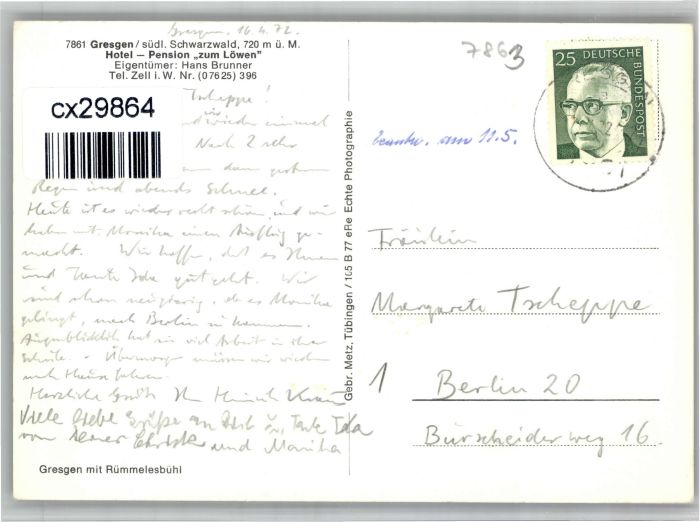 Gresgen. 16.4.72.
7861 Gresgen / südl. Schwarzwald, 720 m ü. M.
Hotel – Pension „zum Löwen”
Eigentümer: Hans Brunner
Tel. Zell i. W. Nr. (0 76 25) 396
cx29864
Tscheppe!
wieder einmal
Nach 2 sehr
dann
Regen und abends Schnee.
Heute ist es wieder recht schön, und wir
haben mit Monika einen Ausflug ge-
macht. Wir hoffen, daß es Ihnen
und Tante Ida gut geht. Wir
sind schon neugierig, ob es Monika
gelingt, nach Berlin zu kommen.
Augenblicklich hat sie viel Arbeit in der
Schule. - Übermorgen müssen wir wieder
nach Hause fahren.
Herzliche Grüße Ihr Heinrich
Viele liebe Grüße an Dich u. Tante Ida
von Deiner und Monika
Gresgen mit Rümmelesbühl
Gebr. Metz, Tübingen / 165 B 77 eRe Echte Photographie
7863
beantw. am 11.5.
25 DEUTSCHE
BUNDESPOST
Fräulein
Margarete Tscheppe
1 Berlin 20
Burscheider weg 16.